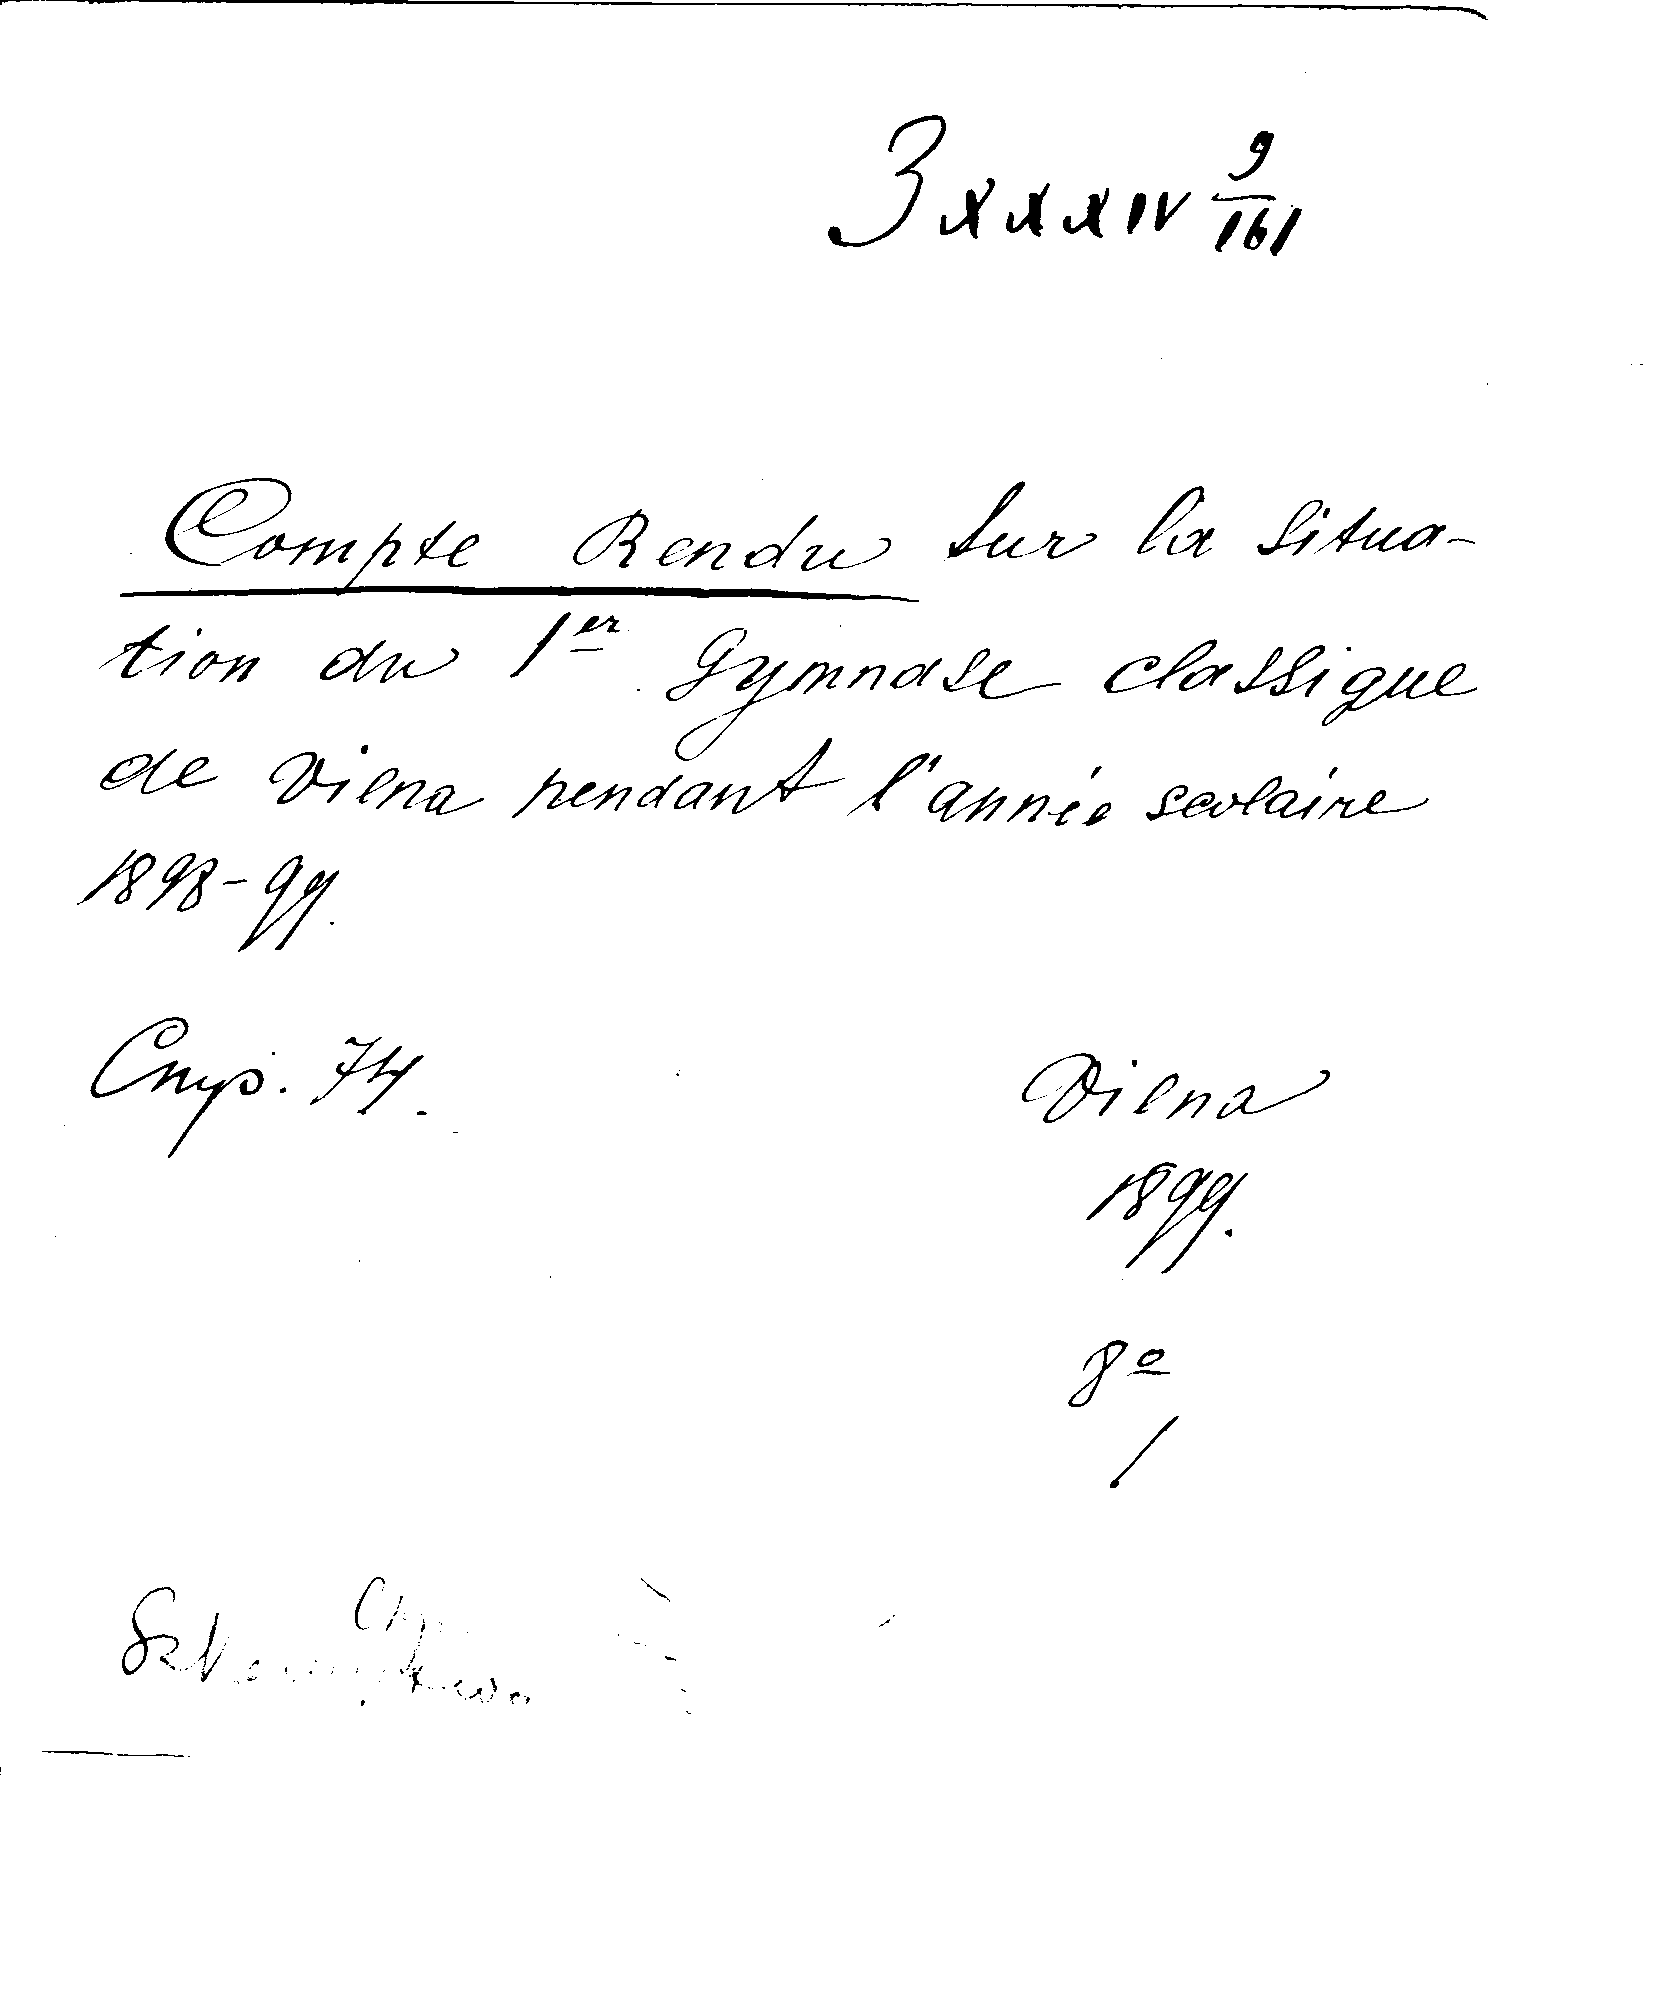 3 XXXIV 9/161
Compte Rendu sur la situa-
tion du 1er Gymnase classique
de Vilna pendant l'année scolaire
1898-99.
Стр. 74.
Vilna
1899.
8o
1